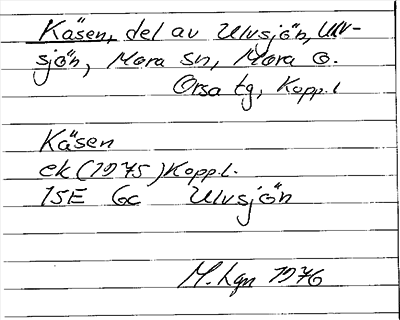 Käsen, del av Ulvsjön, Ulv-
sjön, Mora sn, Mora o.
Orsa tg, Kopp.l
Käsen
ek (1975) Kopp.l.
15E 6c Ulvsjön
M. Lgn 1976